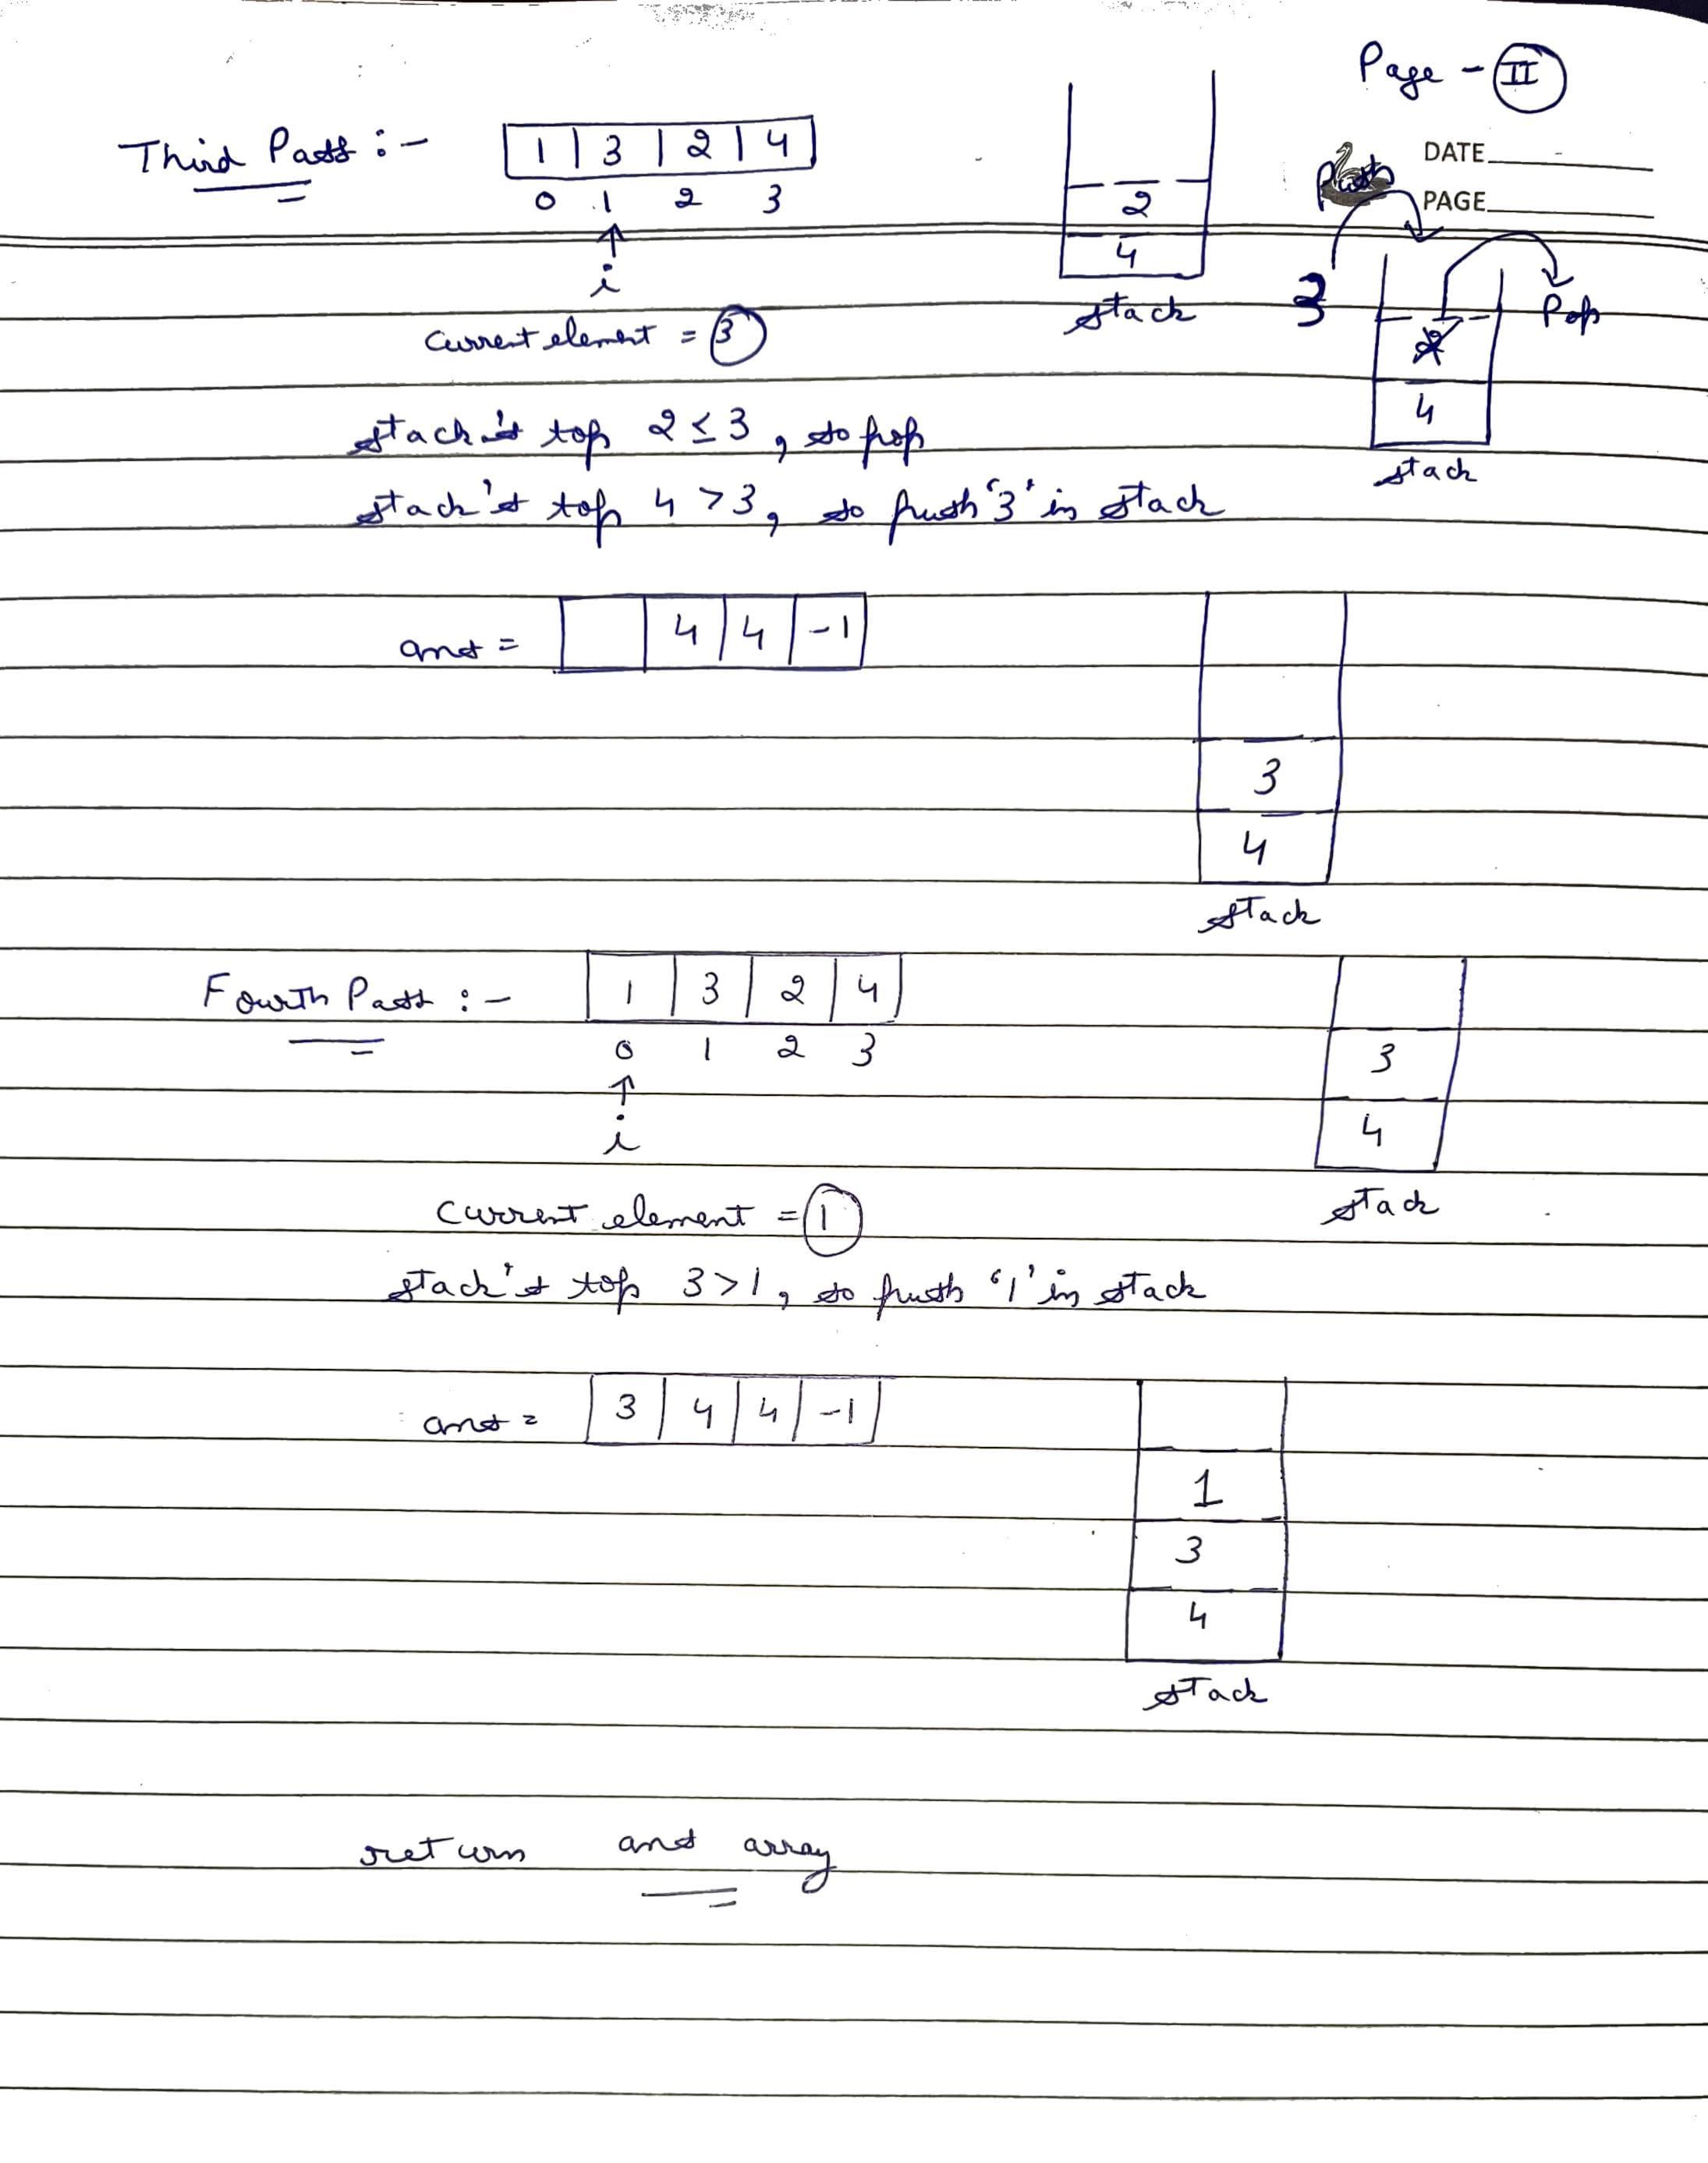 Page - II
DATE
PAGE
Third Pass :-
1 | 3 | 2 | 4
0 1 2 3
i
2
4
stack
Push
3
Pop
2
4
stack
Current element = 3
stack's top 2 ≤ 3, so pop
stack's top 4 > 3, so push '3' in stack
ans =
4 | 4 | -1
3
4
stack
Fourth Pass :-
1 | 3 | 2 | 4
0 1 2 3
i
3
4
stack
Current element = 1
stack's top 3 > 1, so push '1' in stack
ans =
3 | 4 | 4 | -1
1
3
4
stack
return ans array